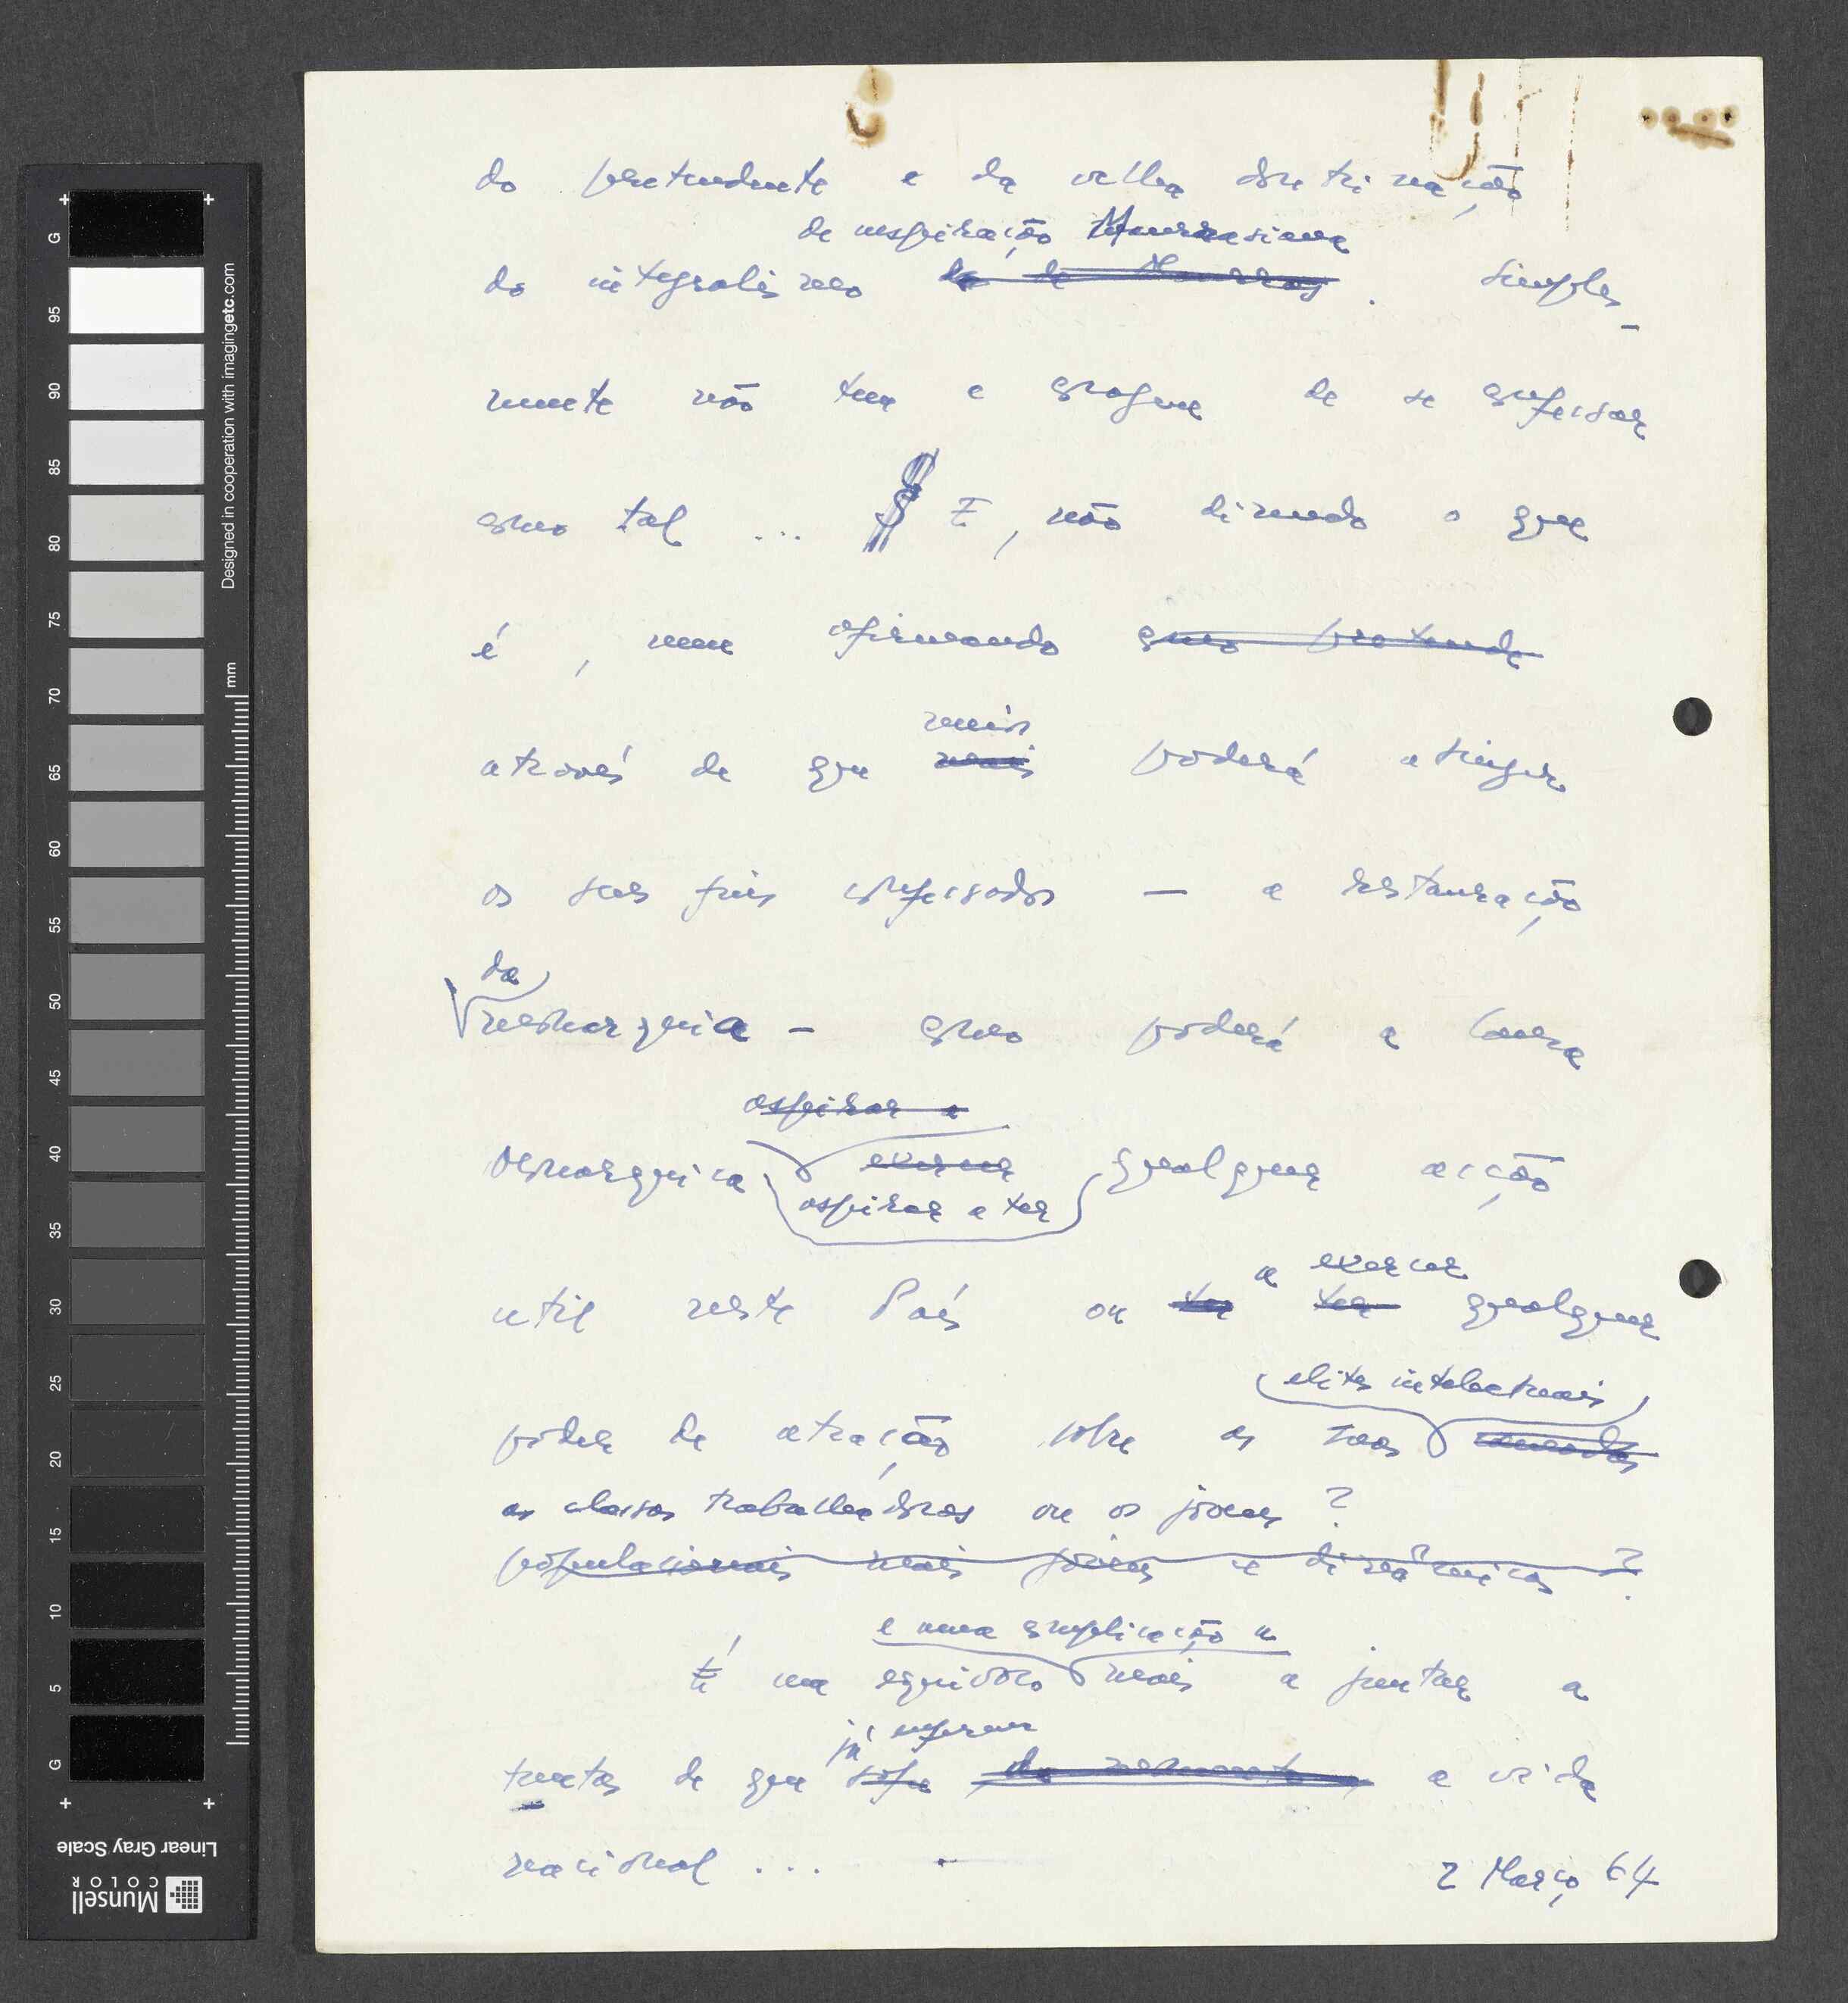 do pretendente e da velha doutrinação
de inspiração Maurrasiana
do integralismo de Maurras. Simples-
mente não tem a coragem de se confessar
como tal ... E, não dizendo o que
é, nem afirmando como pretende
meios
através de que meios poderá atingir
os seus fins confessados — a restauração
da
monarquia — como poderá a Causa
aspirar a
Monárquica exercer qualquer acção
aspirar a ter
a exercer
util neste País ou ter ter qualquer
elites intelectuais
poder de atracção sobre as suas camadas
as classes trabalhadoras ou os jovens ?
populacionais mais jóvens e dinâmicas ?
e uma complicação a
É um equívoco mais a juntar a
já enferma
tantos de que sofre a vida
nacional ...
2 Março 64
G
95
90
85
80
75
70
65
60
55
50
45
40
35
30
25
20
15
10
5
G
mm
Designed in cooperation with imagingetc.com
Linear Gray Scale
Munsell
COLOR